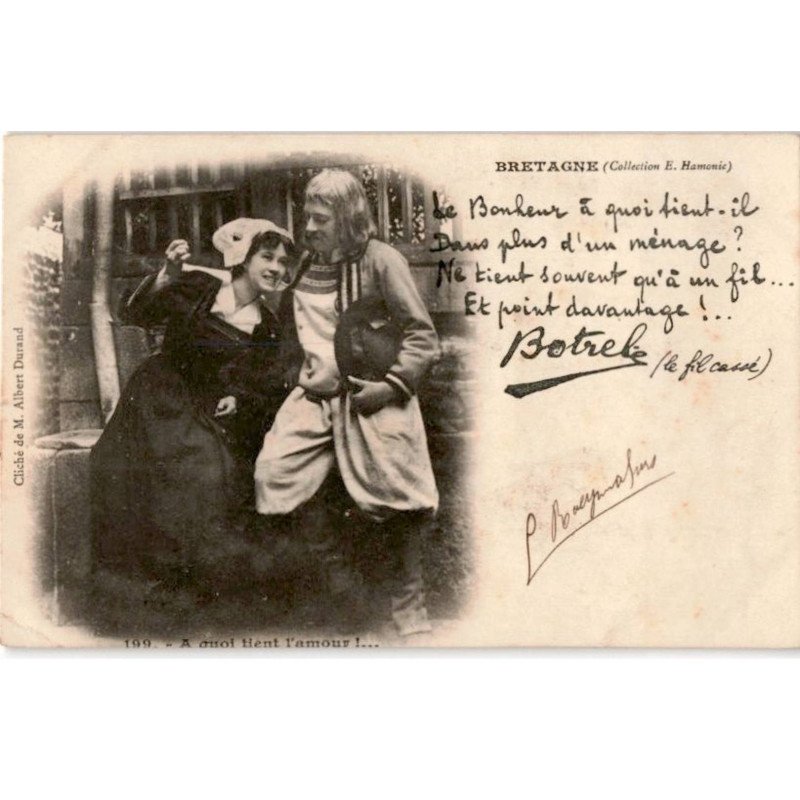 BRETAGNE (Collection E. Hamonic)
Le Bonheur à quoi tient-il
Dans plus d'un ménage ?
Ne tient souvent qu'à un fil...
Et point davantage !..
Botrel
(le fil cassé)
Cliché de M. Albert Durand
199. - A quoi tient l'amour !...